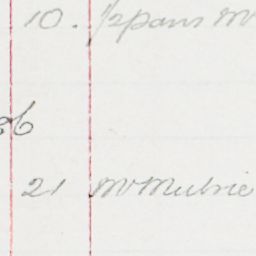 10. 1/2 pans Mr
21 Mr Mulvie